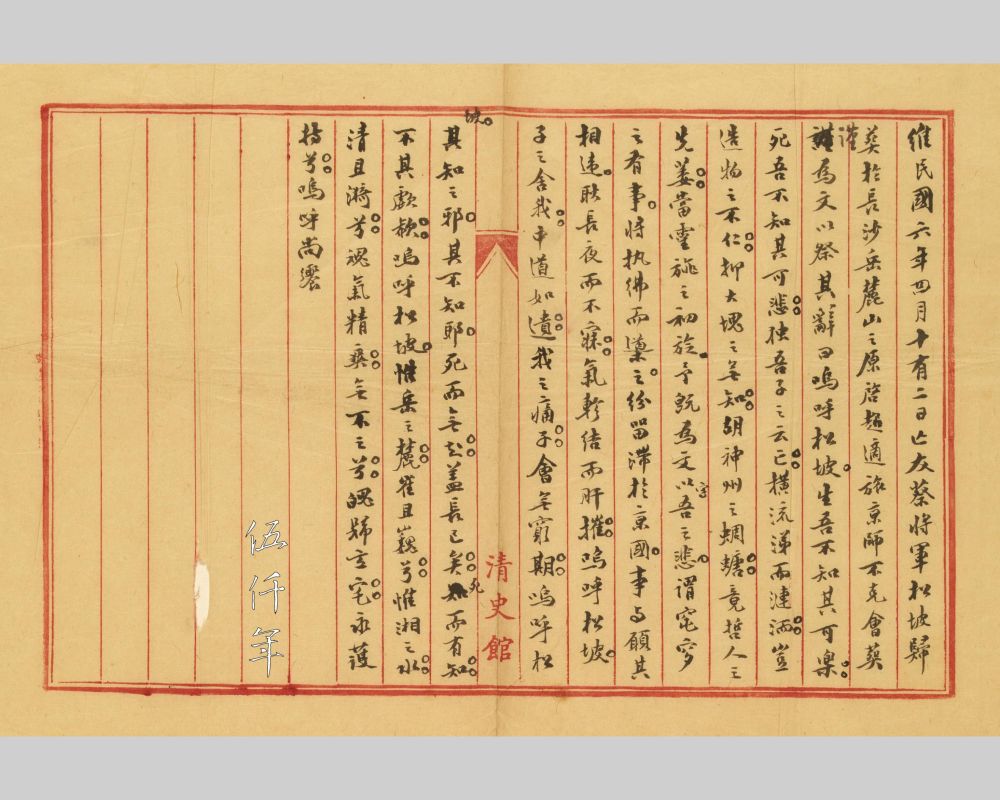 維民國六年四月十有二日亡友蔡將軍松坡歸
葬於長沙岳麓山之原啓超適旅京師不克會葬
謹為文以祭其辭曰嗚呼松坡生吾不知其可樂
死吾不知其可悲独吾子之云亡橫流涕而漣洏豈
造物之不仁抑大塊之無知胡神州之蜩螗竟哲人之
先萎當靈旐之初旋予既為文以吾之悲謂窀穸
字
之有事將执紼而薤之紛留滯於京國事与願其
相違眹長夜而不寐氣軫结而肝摧嗚呼松坡
子之舍我中道如遺我之痛子會無窮期嗚呼松
坡
其知之邪其不知耶死而無知蓋長已矣死而有知
不其歔欷嗚呼松坡惟岳之麓崔且巍兮惟湘之水
清且漪兮魂氣精爽無不之兮魄歸玄宅永護
持兮嗚呼尚饗
清史館
伍仟年